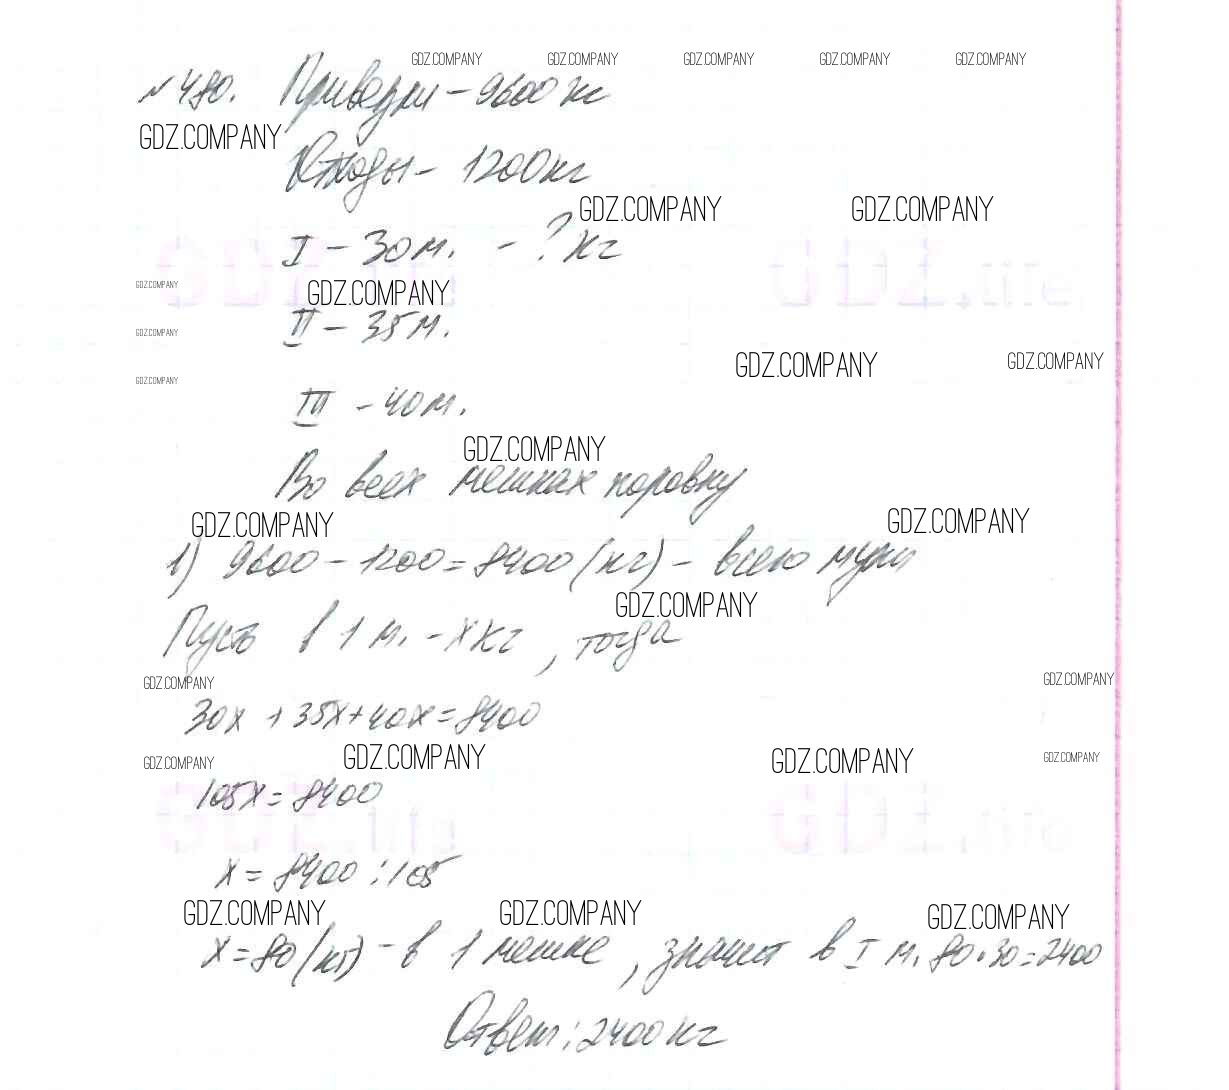 GDZ.COMPANY GDZ.COMPANY GDZ.COMPANY GDZ.COMPANY GDZ.COMPANY
№480. Привезли - 9600 кг
GDZ.COMPANY
Отходы - 1200 кг
GDZ.COMPANY GDZ.COMPANY
I - 30 м. - ? кг
GDZ.life GDZ.life
GDZ.COMPANY GDZ.COMPANY
II - 35 м.
GDZ.COMPANY
GDZ.COMPANY GDZ.COMPANY
GDZ.COMPANY
III - 40 м.
GDZ.COMPANY
Во всех мешках поровну
GDZ.COMPANY GDZ.COMPANY
1) 9600 - 1200 = 8400 (кг) - всего муки
GDZ.COMPANY
Пусть в 1 м. - x кг, тогда
GDZ.COMPANY GDZ.COMPANY
30x + 35x + 40x = 8400
GDZ.COMPANY GDZ.COMPANY GDZ.COMPANY GDZ.COMPANY
105x = 8400
GDZ.life GDZ.life
x = 8400 : 105
GDZ.COMPANY GDZ.COMPANY GDZ.COMPANY
x = 80 (кг) - в 1 мешке, значит в I м. 80 · 30 = 2400
Ответ: 2400 кг